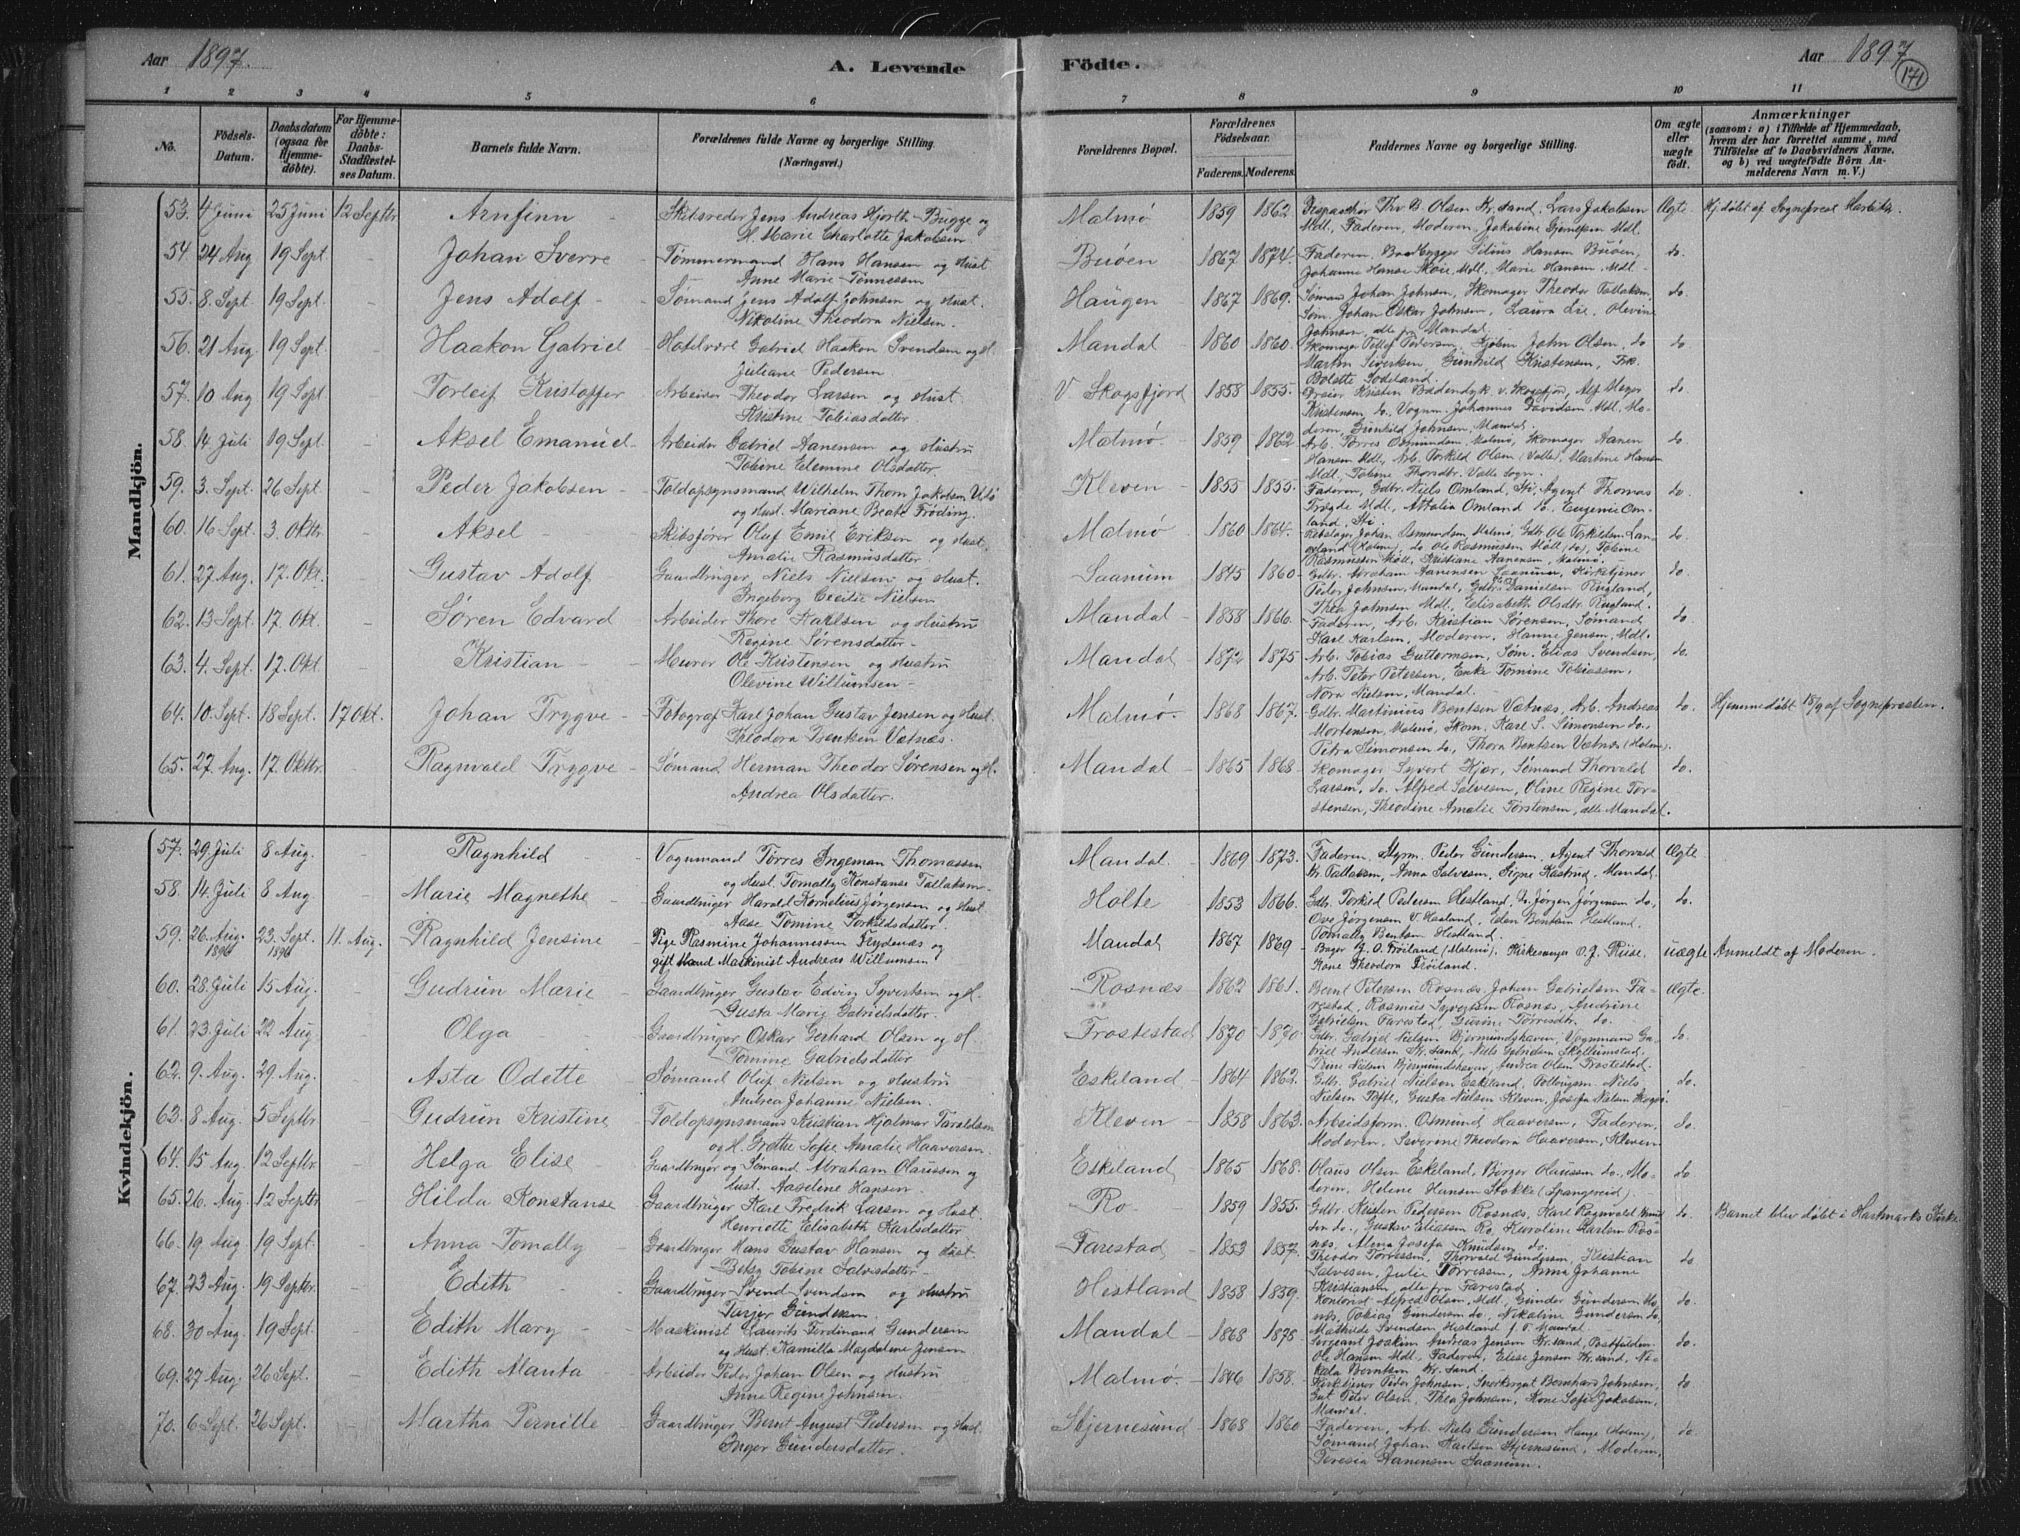 Aar 1897.
A. Levende Födte.
Aar 1897
171
1 2 3 4 5 6 7 8 9 10 11
No.
Födsels-Datum.
Daabsdatum (ogsaa for Hjemmedöbte).
For Hjemmedöbte: Daabs-Stadfæstelses Datum.
Barnets fulde Navn.
Forældrenes fulde Navne og borgerlige Stilling. (Næringsvei.)
Forældrenes Bopæl.
Forældrenes Födselsaar.
Faderens. Moderens.
Faddernes Navne og borgerlige Stilling.
Om ægte eller uægte födt.
Anmærkninger
(saasom: a) i Tilfælde af Hjemmedaab, hvem der har forrettet samme, med Tilföielse af to Daabsvidners Navne, og b) ved uægtefödte Börn Anmelderens Navn m. V.)
Mandkjön.
53. 4 Juni 25 Juni 12 Septbr Arnfinn - Skibsreder Jens Andreas Hjorth-Bugge og H. Marie Charlotte Jakobsen Malmø 1859 1862 Olsen Kr.sand, Lars Jakobsen Mdl, Faderen, Moderen, Jakobine Mdl. Ægte Hj.døbt af Sogneprest
54. 24 Aug 19 Sept - Johan Sverre - Tømmermand Hans Hansen og Hust Anne Marie Tønnessen Buøen 1867 1874. Faderen, Hansen Buøen, Johanne Mdl., Marie Hansen, Mdl. do.
55. 8. Sept 19 Sept. - Jens Adolf - Sømand Jens Adolf Johnsen og Hust. Nikoline Theodora Nielsen. Haugen 1867 1869. Sømand Johan Johnsen, Skomager Theodor Tallaksen, Søm. Johan Oskar Johnsen, Laura Lie, Olevine Johnsen, alle fra Mandal. do.
56. 21 Aug. 19 Sept. - Haakon Gabriel Gabriel Haakon Svendsen og H. Juliane Pedersen Mandal 1860 1860. Skomager Pedersen, John Olsen, do Martin Siversen, Gunhild Kristensen, Frk. Bolette Sodeland. do.
57. 10 Aug 19 Sept - Torleif Kristoffer Arbeider Theodor Larsen og Hust. Kristine Tobiasdatter V Skogsfjord 1858 1855. Kristen v. Skogsfjord, Alf Meyer Kristensen do. Vognm. Johannes Davidsen Mdl, Moderen, Gunhild Johnsen, Mandal. do
58. 14. Juli 19 Sept. - Aksel Emanuel - Arbeider Gabriel Aanensen og Hustru Tobine Elemine Olsdatter. Malmø - 1859 1862 Arb. Tørres Osmundsen, Malmø, Skomager Aanen Hansen Mdl, Arb. Torkild Olsen (Valle), Martine Hansen Mdl, Tobine Thorsdtr. Valle sogn. do.
59. 3. Sept 26 Sept - Peder Jakobsen - Toldopsynsmand Wilhelm Thorn Jakobsen og Hust. Mariane Beate Frøding. Kleven - 1855 1855. Faderen, Gdbr. Niels Omland, Agent Thomas Mdl, Attalia Omland do. Eugenie Omland, do.
60. 16 Sept 3. Oktbr - Aksel - Skibsfører Oluf Emil Eriksen og Hust. Amalie Rasmusdatter Malmø 1860 1864. Johan Osmundsen, Malmø, Gdbr. Ole Torkildsen (Holme), do Ole Rasmussen Møll (do), Tobine Rasmussen Møll, Kristiane Aanensen, Malmø. do
61. 27 Aug. 17. Okt. - Gustav Adolf Gaardbruger, Niels Nielsen og Hust. Ingeborg Cecilie Nielsen Saanum 1845 1860 - Gdbr. Abraham Aanensen Saanum, Kirketjener Peder Johnsen, Mandal, Gdbr Danielsen Rugland, Thea Johnsen Mdl., Elisabeth Olsdtr. Rugland. do
62. 13 Sept. 17. Okt. - Søren Edvard Arbeider Thore Karlsen og Hustru Regine Sørensdatter - Mandal - 1858 1866. Faderen, Arb. Kristian Sørensen, Sømand Karl Karlsen, Moderen, Hanne Jensen, Mdl. do
63. 4. Sept. 17. Okt - Kristian - Murer Ole Kristensen og Hustru Olevine Willumsen - Mandal - 1872 1875 Arb. Tobias Guttormsen, Søm. Elias Svendsen, Arb. Peter Petersen, Enke Tomine Tobiassen, Nora Nielsen, Mandal. do.
64. 10. Sept. 18 Sept. 17 Okt. Johan Trygve - Fotograf Karl Johan Gustav Jensen og Hust. Theodora Bentsen Vatnæs. Malmø. - 1868 1867. Gdbr. Martinius Bentsen Vatnæs, Arb. Andreas Mortensen, Malmø, Skom. Karl S. Simonsen do. Petra Simonsen do, Thora Bentsen Vatnæs (Holme). do. Hjemmedøbt 18/9 af Sognepresten.
65. 27 Aug. 17. Oktbr. - Ragnvald Trygve - Sømand Herman Theodor Sørensen og H. Andrea Olsdatter. Mandal - 1865 1868 Skomager Syvert Kjær, Sømand Thorvald Larsen, do. Alfred Salvesen, Oline Regine Torstensen, Theodine Amalie Torstensen, alle Mandal. do.
Kvindekjön.
57. 29 Juli 8 Aug. - Ragnhild - Vognmand Tørres Ingeman Thomassen og Hust. Tomally Konstanse Tallaksen Mandal. 1869 1873. Faderen, Styrm. Peder Gundersen, Agent Thorvald Kr. Tallaksen, Anna Salvesen, Signe Kastrud, Mandal. Ægte
58. 14. Juli 8 Aug. - Marie Magnethe Gaardbruger Harald Kornelius Jørgensen og Hust Aase Tomine Torkildsdatter. Holte 1853 1866. Gdb. Torkild Pedersen Hestland, Do. Jørgen Jørgensen do, Ove Jørgensen V. Hesland, Elen Bentsen Hestland, Tomally Bentsen Hestland. do.
59. 26. Aug. 1896 23. Sept. 1896 11. Aug. Ragnhild Jensine Pige Rasmine Johannessen Frydenæs og gift Mand Maskinist Andreas Willumsen Mandal 1867 1869 Bager J. O. Frøiland (Malmø). Kirkesanger O. J. Ruse, Kone Theodora Frøiland. uægte Anmeldt af Moderen.
60. 28. Juli 15 Aug. - Gudrun Marie - Gaardbruger Gustav Edvin Syvertsen og H. Gusta Marie Gabrielsdatter. Rosnæs - 1862 1861. Bernt Petersen Rosnæs, Johan Gabrielsen Farestad, Rasmus Syvertsen Rosnæs, Andrine Gabrielsen Farestad, Gurine Tørresdtr. do. Ægte.
61. 23 Juli 22 Aug. - Olga - Gaardbruger Oskar Gerhard Olsen og H. Tomine Gabrielsdatter Frostestad 1870 1870. Gdbr. Gabriel Nielsen Bjørmundshaven, Vognmand Gabriel Andersen Kr.sand, Niels Gabrielsen Skjllumstad. Trine Nielsen Bjørmundshaven, Andrea Olsen Frostestad. do
62. 9. Aug. 29 Aug. - Asta Odette Sømand Oluf Nielsen og Hustru Andrea Johanne Nielsen. Eskeland - 1864 1862. Gdbr. Gabriel Nielsen Eskeland, Niels Nielsen Tofte, Gusta Nielsen Kleven, Josefa Nielsen do.
63. 8 Aug. 5 Septbr. - Gudrun Kristine Toldopsynsmand Kristian Hjalmar Taraldsen og H. Grethe Sofie Amalie Haaversen Kleven - 1858 1863. Arbeidsform. Osmund Haaversen, Faderen, Moderen, Severine Theodora Haaversen, Kleven do.
64. 15 Aug. 12 Septbr. - Helga Elise - Gaardbruger og Sømand Abraham Olaussen og Hust. Aaseline Hansen. Eskeland 1865 1868. Olaus Olsen Eskeland, Børger Olaussen do. Moderen, Helene Hansen Stokke (Spangereid). do
65. 26. Aug 12 Septbr - Hilda Konstanse Gaardbruger Karl Fredrik Larsen og Hust. Henriette Elisabeth Karlsdatter Ro - 1859 1855. Gdbr. Kristen Pedersen Rosnæs, Karl Ragnvald do., Gustav Eliassen Ro, Karoline Karlsen Rosnæs, Alena Josefa Knudsen do. do. Barnet blev døbt i Harkmarks Kirke
66. 19 Aug. 19 Sept. - Anna Tomally - Gaardbruger Hans Gustav Hansen og Hust. Betsy Tobine Salvesdatter - Farestad 1853 1857. Theodor Tørressen, Thorvald Gundersen, Kristian Salvesen, Julie Tørressen, Anna Johanne Kristiansen, alle fra Farestad. do
67. 23 Aug. 19 Septbr. - Edith - Gaardbruger Svend Svendsen og Hustru Turger Gundersen Hestland 1858 1859. Kontorist Alfred Olsen, Mdl. Gunder Gundersen Tobias Gundersen do. Nikoline Gundersen do, Mathilde Svendsen Hestland f. T. Mandal. do.
68. 30 Aug. 19 Sept. - Edith Mary - Maskinist Laurits Ferdinand Gundersen og Hust. Kamilla Magdalene Jensen Mandal - 1868 1878 Sergeant Joakim Andreas Jensen Kr.sand, Ole Hansen Mdl, Faderen, Elise Jensen Kr.sand, Berntsen Kr.sand. do.
69. 27 Aug. 26 Sept. - Edith Alanta - Arbeider Peder Johan Olsen og Hustru Anne Regine Johnsen. Malmø. - 1846 1858. Kirketjener Peder Johnsen, Bernhard Johnsen, Gut Peter Olsen, Thea Johnsen, Kone Sofie Jakobsen, Mandal. do
70. 6 Sept. 26 Sept. - Martha Pernille Gaardbruger Bernt August Pedersen og Hust. Inger Gundersdatter. Stjernesund 1868 1860 Faderen, Arb. Niels Gundersen Hauge (Holme), Sømand Johan Karlsen Stjernesund, Moderen, Teresia Aanensen Saanum. do.